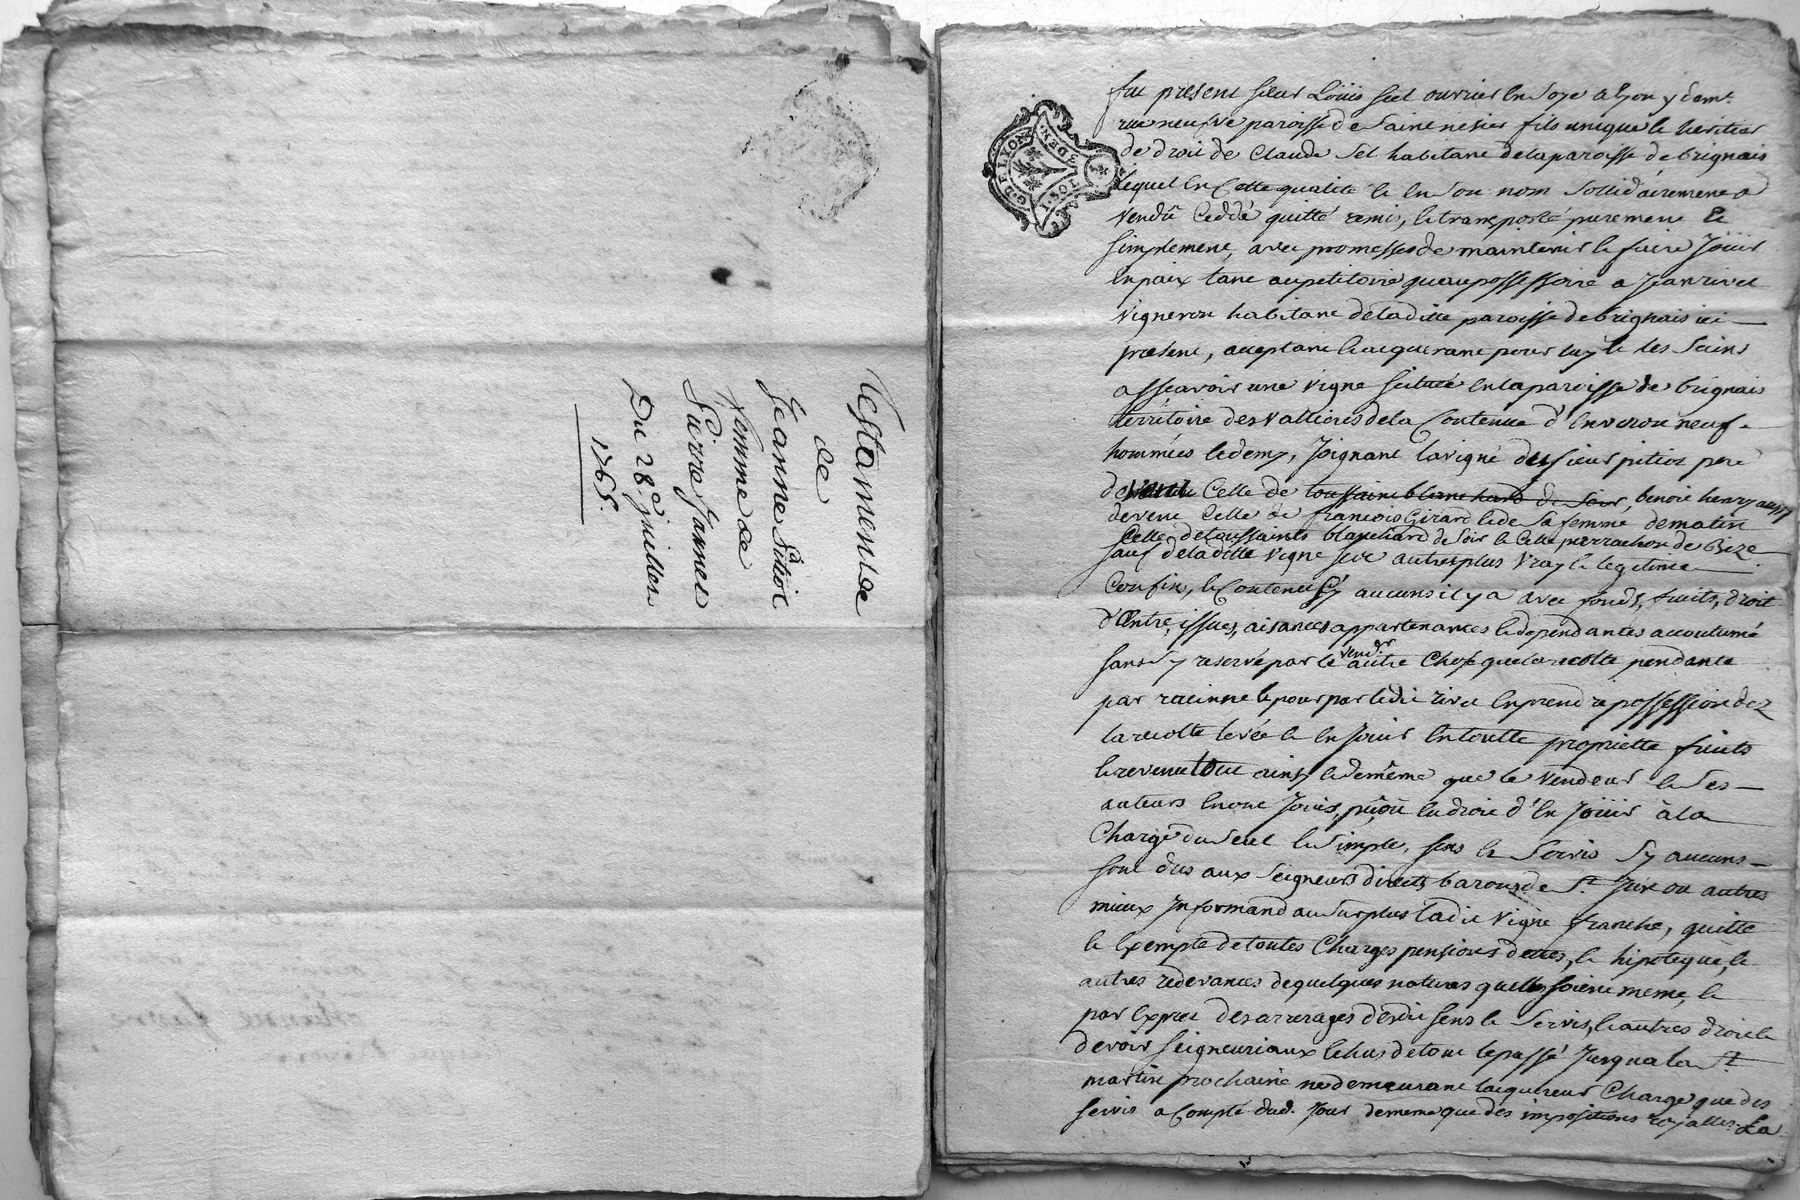 Testament
de
Jeanne
femme de
Pierre James
Du 28e juillet
1765.
G. DE LYON
1. SOL
3 DEN.
fut present sieur Loüis Sel ouvrier en soye a lyon y demt.
rue neufve paroisse de saint nisier fils unique et heritier
de droit de Claude Sel habitant de la paroisse de brignais
lequel en cette qualité et en son nom sollidairement a
vendû ceddé quitté remis, et transporté purement et
simplement, avec promesses de maintenir et faire Joüir
en paix tant au petitoire qu'au possessoire a Jean rivet
vigneron habitant de la ditte paroisse de brignais ici
present, acceptant et acquerant pour luy et les siens
assçavoir une vigne scituée en la paroisse de brignais
territoire des vallieres de la contenue d'environ neuf
hommées et demy, Joignant la vigne du sieur pitiot pere
de celle de toussaint blanchard de soir, benoit henry
devent celle de francois Girard et de sa femme de matin
celle de toussaints blanchard de soir et celle perrachon de Bize
sauf de la ditte vigne ses autres plus vray et legitimes
Confins, et contenus s'y aucuns il y a avec fonds, fruits, droit
d'Entré, issues, aisances appartenances et dependantes accoutumé
sans s'y reservé par le vendr. autre chose que la recolte pendante
par racinne et pour par ledit rivet en prendre possession dez
la recolte levée et en Jouir en toutte propriette fruits
et revenu tout ainsy et de même que le vendeur et ses
auteurs en ont Joüis, pû, ou eu droit d'en Joüir à la
Charge du seul et simple, sens et servis s'y aucuns
sont dus aux seigneurs directs barons de St. Jux ou autres
mieux Informand au surplus ladit vigne franche, quitte
et Exempte de toutes Charges pensions dettes, et hipoteque, et
autres redevances de quelques natures quelle soient meme, et
par Exprez des arrerages desdit sens et servis, et autres droit et
devoir seigneuriaux echus de tout le passé Jusqu'a la St.
martin prochaine ne demeurant l'acquereur Chargé que des
servis a Compté dud. Jour de meme que des impositions royalles. La